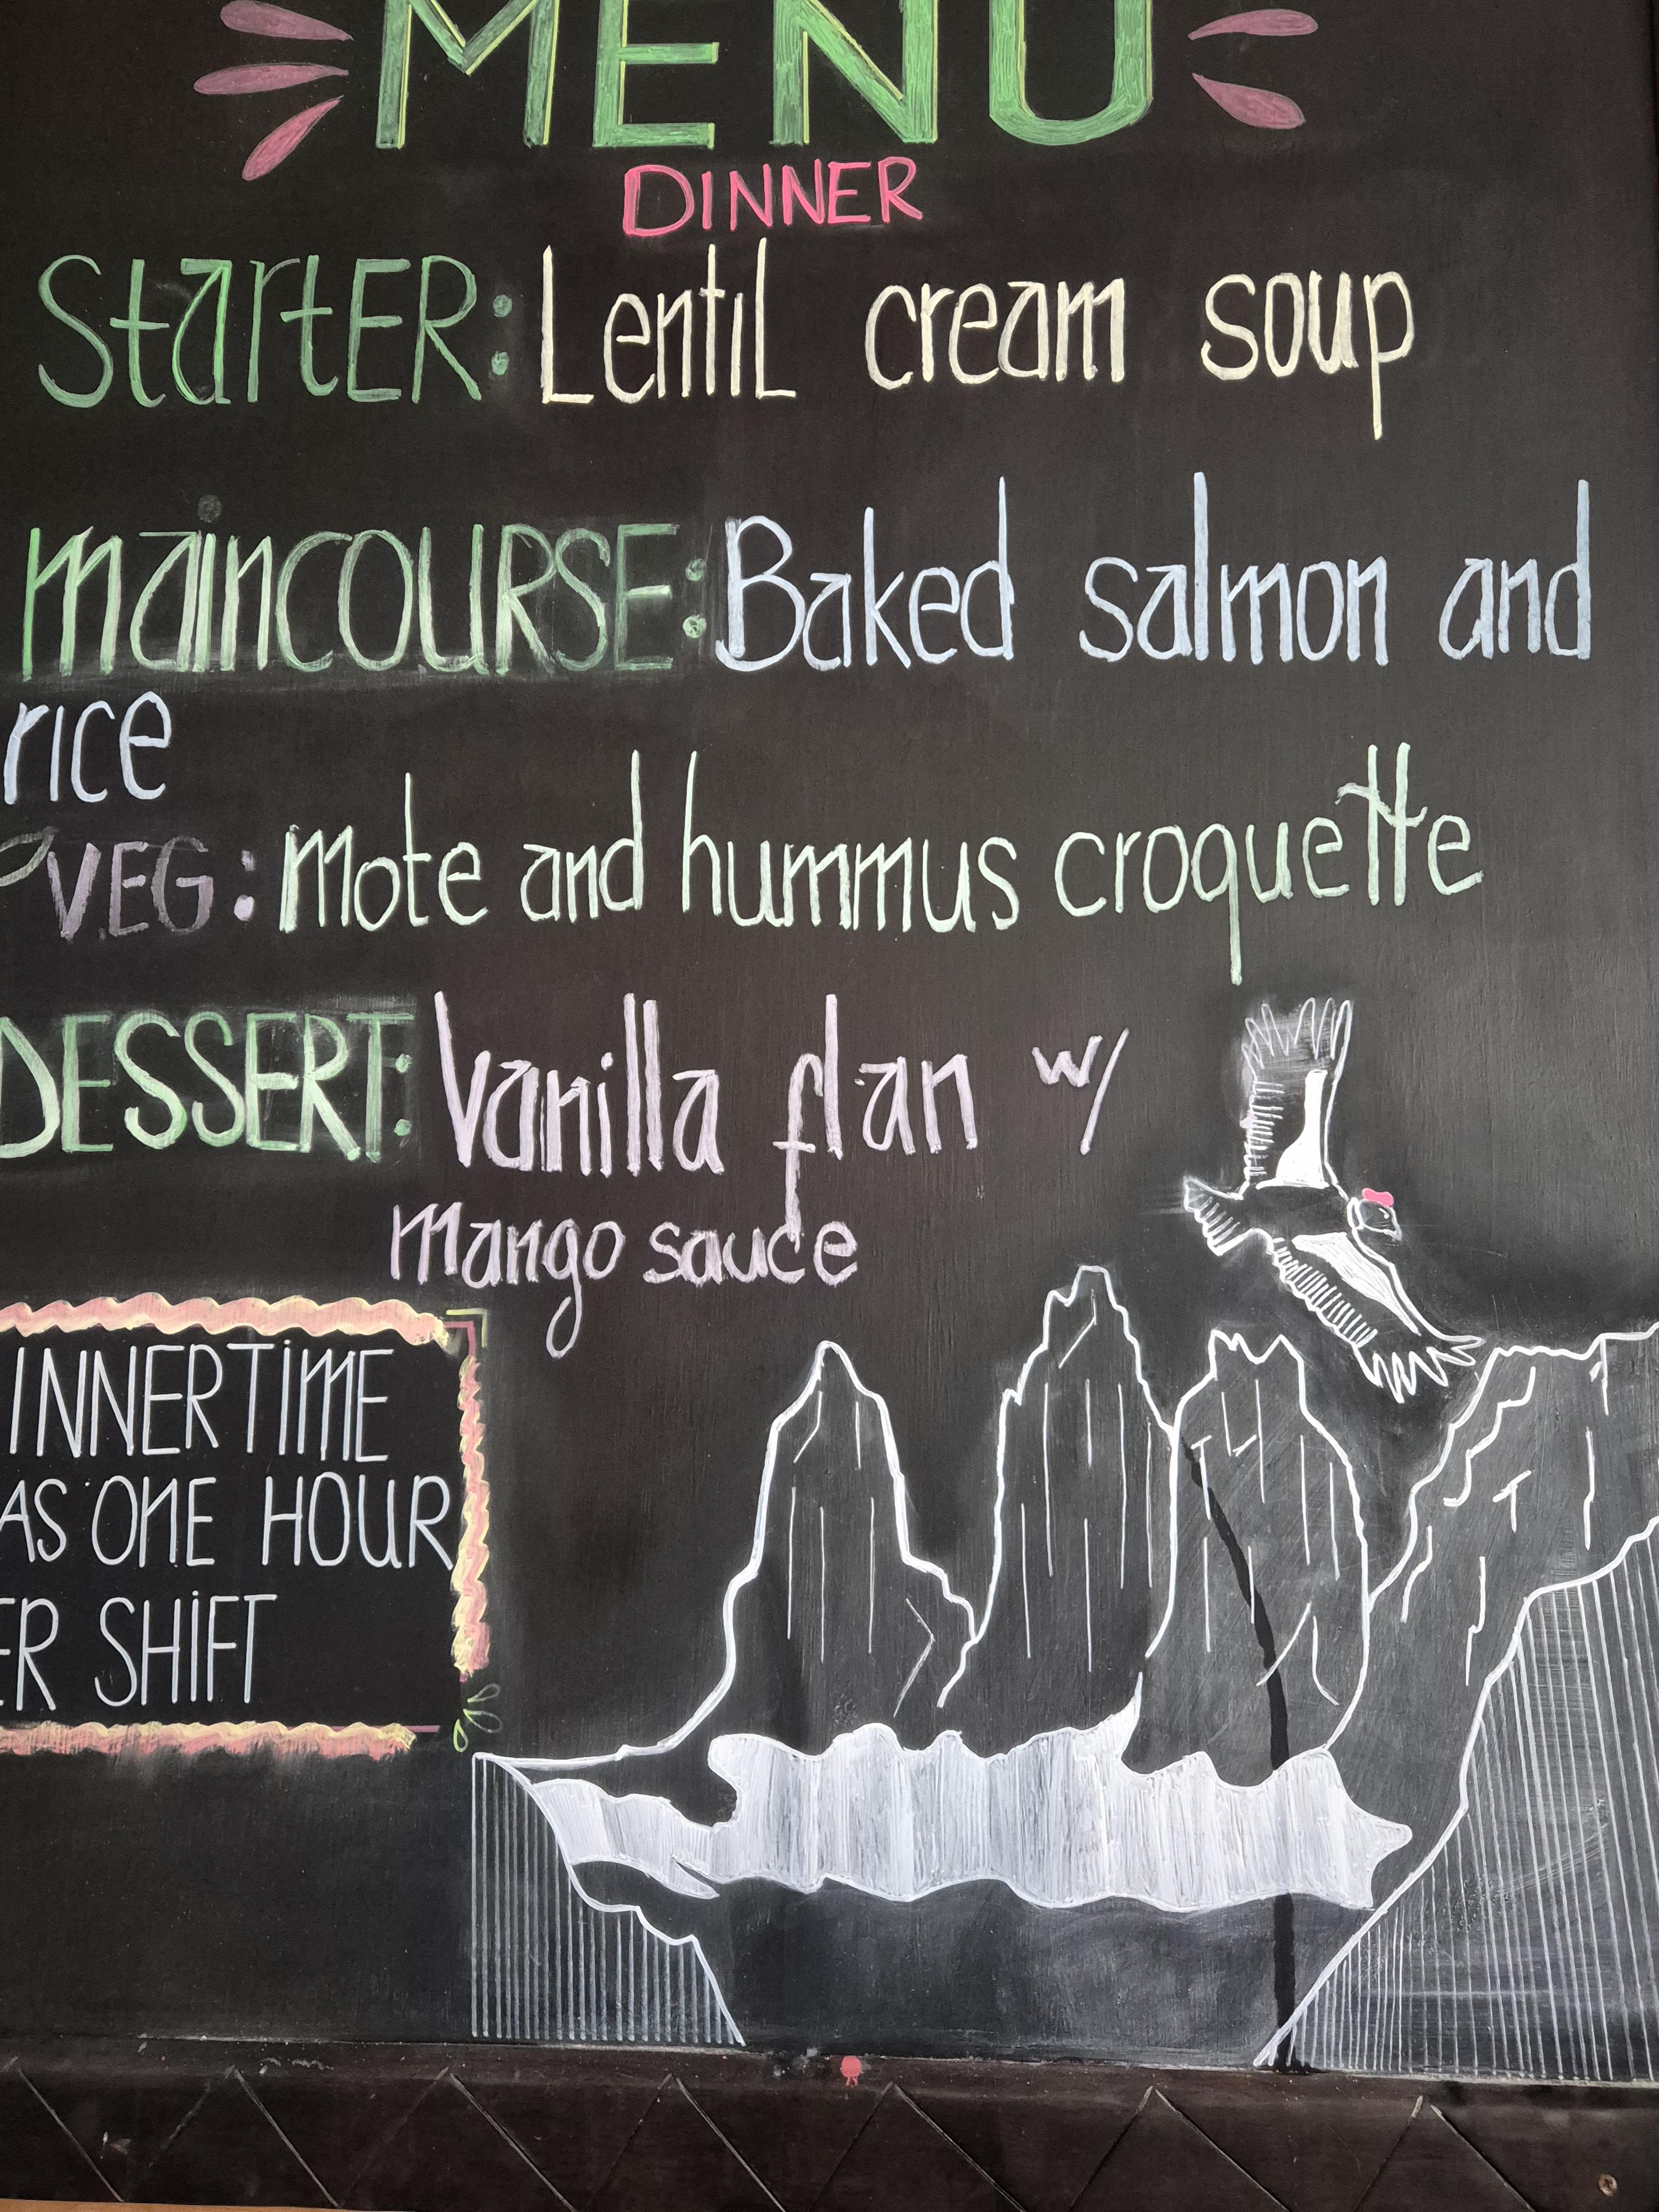 MENU
DINNER
StartER: Lentil cream soup
mainCOURSE: Baked salmon and
rice
VEG: Mote and hummus croquette
DESSERT: Vanilla flan w/
mango sauce
INNERTiME
AS ONE HOUR
ER SHiFT